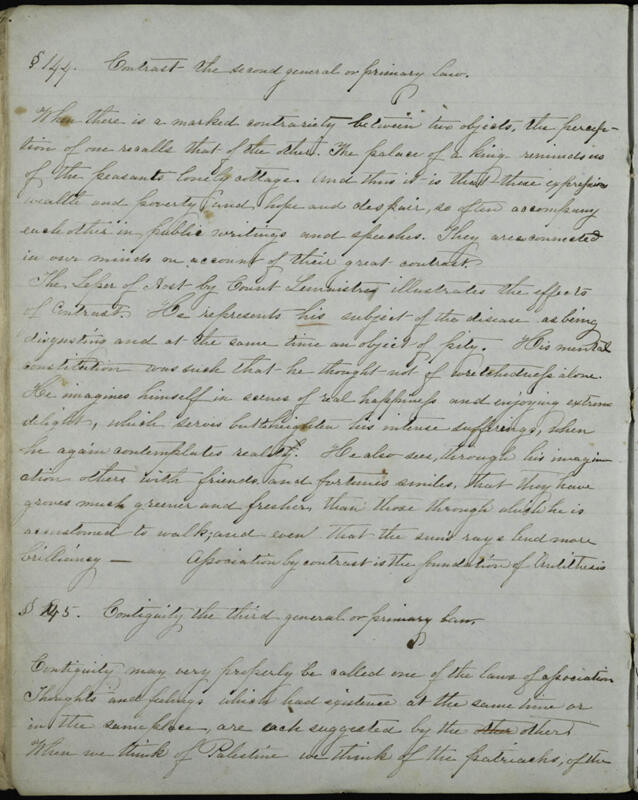 § 144. Contrast the second general or primary law.
When there is a marked contrariety between two objects, the percep-
tion of one recalls that of the other. The palace of a king reminds us
of the peasants lonely cottage. And thus it is that those expressions
wealth and poverty and hope and despair, so often accompany
each other in public writings and speeches. They are connected
in our minds on account of their great contrast.
The Leper of Aost by Count illustrates the effects
of Contrast. He represents his subject of the disease as being
disgusting and at the same time an object of pity. His mental
constitution was such that he thought not of wretchedness alone.
He imagines himself in scenes of real happiness and enjoying extreme
delight, which serves but heighten his intense sufferings, when
he again contemplates reality. He also sees, through his imagin-
ation others with friends, and fortune's smiles, that they have
groves much greener and fresher, than those through which he is
accustomed to walk, and even that the suns rays lend more
brilliancy — Association by contrast is the foundation of Antithesis
§ 145. Contiguity the third general or primary law
Contiguity may very properly be called one of the laws of association
Thoughts and feelings which had existence at the same time or
in the same place, are each suggested by the other other.
When we think of Palestine we think of the patriachs, of the